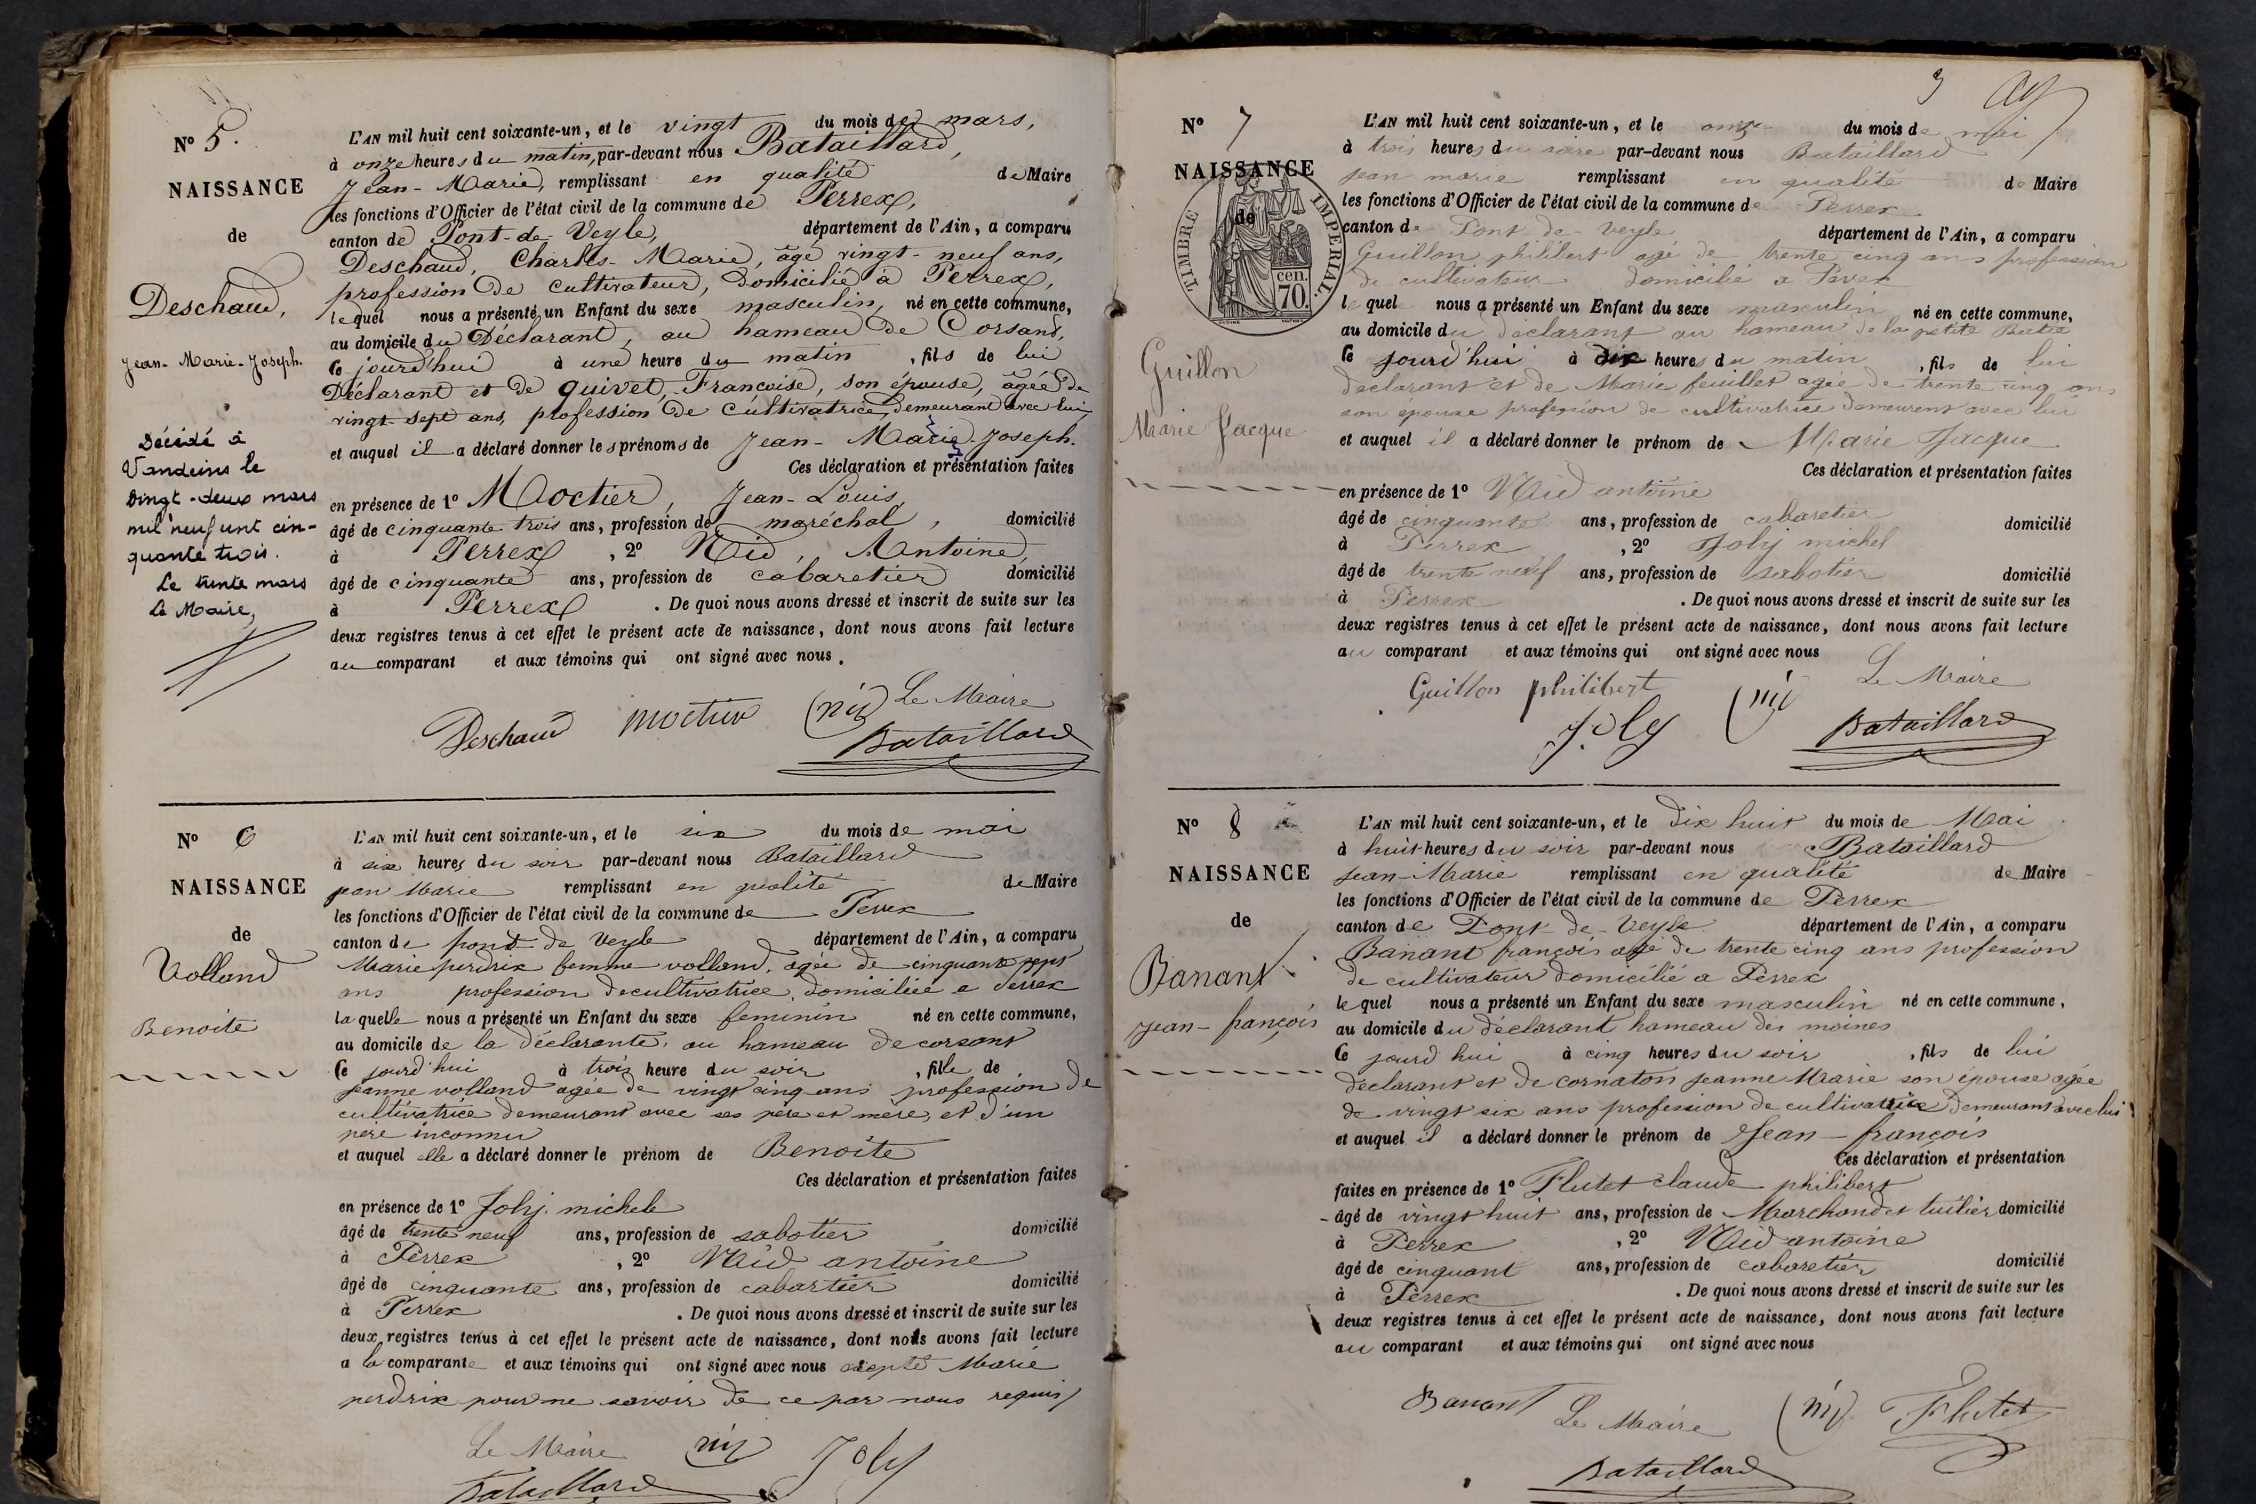 Nº 5.
NAISSANCE
de
Deschaud,
Jean-Marie-Joseph.
Décédé à
Vandeins le
Vingt-deux mars
mil neuf cent cin-
quante trois.
Le trente mars
Le Maire,
L'AN mil huit cent soixante-un, et le vingt du mois de mars,
à onze heures du matin, par-devant nous Bataillard,
Jean-Marie, remplissant en qualité de Maire
les fonctions d'Officier de l'état civil de la commune de Perrex,
canton de Pont-de-Veyle, département de l'Ain, a comparu
Deschaud, Charles-Marie, âgé vingt-neuf ans,
profession de cultivateur, domicilié à Perrex,
lequel nous a présenté un Enfant du sexe masculin, né en cette commune,
au domicile du Déclarant, au hameau de Corsant,
Ce jourd'hui à une heure du matin, fils de lui
Déclarant et de Quivet, Françoise, son épouse, âgée de
vingt-sept ans, profession de cultivatrice, demeurant avec lui,
et auquel il a déclaré donner les prénoms de Jean-Marie-Joseph.
Ces déclaration et présentation faites
en présence de 1º Moctier, Jean-Louis,
âgé de cinquante trois ans, profession de maréchal, domicilié
à Perrex, 2º Nid, Antoine,
âgé de cinquante ans, profession de cabaretier domicilié
à Perrex. De quoi nous avons dressé et inscrit de suite sur les
deux registres tenus à cet effet le présent acte de naissance, dont nous avons fait lecture
au comparant et aux témoins qui ont signé avec nous.
Deschaud moctier nid Le Maire
Bataillard
Nº 6
NAISSANCE
de
Volland
Benoite
L'AN mil huit cent soixante-un, et le six du mois de mai
à six heures du soir par-devant nous Bataillard
jean Marie remplissant en qualité de Maire
les fonctions d'Officier de l'état civil de la commune de Perrex
canton de pont de Veyle département de l'Ain, a comparu
Marie perdrix femme volland, agée de cinquante sept
ans profession de cultivatrice, domiciliée a Perrex
laquelle nous a présenté un Enfant du sexe feminin né en cette commune,
au domicile de la déclarante, au hameau de corsant
Ce jourd'hui à trois heure du soir, fille de
jeanne volland agée de vingt cinq ans profession de
cultivatrice demeurant avec ses père et mère, et d'un
père inconnu
et auquel elle a déclaré donner le prénom de Benoite
Ces déclaration et présentation faites
en présence de 1º Joly michel
âgé de trente neuf ans, profession de sabotier domicilié
à Perrex, 2º Nid antoine
âgé de cinquante ans, profession de cabartier domicilié
à Perrex. De quoi nous avons dressé et inscrit de suite sur les
deux registres tenus à cet effet le présent acte de naissance, dont nous avons fait lecture
a la comparante et aux témoins qui ont signé avec nous Marie
perdrix pour ne savoir de ce par nous requis
Le Maire nid Joly
Bataillard
3
Nº 7
NAISSANCE
de
TIMBRE IMPERIAL.
cen.
70.
Guillon
Marie Jacque
L'AN mil huit cent soixante-un, et le onze du mois de mai
à trois heures du soire par-devant nous Bataillard
jean marie remplissant en qualité de Maire
les fonctions d'Officier de l'état civil de la commune de Perrex
canton de Pont de Veyle département de l'Ain, a comparu
Guillon philibert agé de trente cinq ans profession
de cultivateur domicilié a Perex
lequel nous a présenté un Enfant du sexe masculin né en cette commune,
au domicile du déclarant au hameau de la petite
Ce jourd'hui à dix heures du matin, fils de lui
declarant et de Marie feuillet agée de trente cinq ans
son épouse profession de cultivatrice demeurent avec lui
et auquel il a déclaré donner le prénom de Marie Jacque
Ces déclaration et présentation faites
en présence de 1º Nid antoine
âgé de cinquante ans, profession de cabaretier domicilié
à Perrex, 2º Joly michel
âgé de trente neuf ans, profession de sabotier domicilié
à Perrex. De quoi nous avons dressé et inscrit de suite sur les
deux registres tenus à cet effet le présent acte de naissance, dont nous avons fait lecture
au comparant et aux témoins qui ont signé avec nous
Guillon philibert nid Le Maire
Joly Bataillard
Nº 8
NAISSANCE
de
Banant
Jean-françois
L'AN mil huit cent soixante-un, et le dix huit du mois de Mai
à huit heures du soir par-devant nous Bataillard
Jean-Marie remplissant en qualité de Maire
les fonctions d'Officier de l'état civil de la commune de Perrex
canton de Pont-de-Veyle département de l'Ain, a comparu
Banant françois agé de trente cinq ans profession
de cultivateur domicilié a Perrex
lequel nous a présenté un Enfant du sexe masculin né en cette commune,
au domicile du déclarant hameau des moines
Ce jourd'hui à cinq heures du soir, fils de lui
déclarant et de cornaton jeanne Marie son épouse agée
de vingt six ans profession de cultivatrice demeurant avec lui
et auquel il a déclaré donner le prénom de Jean-françois
Ces déclaration et présentation
faites en présence de 1º Flutet claude philibert
âgé de vingt huit ans, profession de Marchand et tuilier domicilié
à Perrex, 2º Nid antoine
âgé de cinquant ans, profession de cabaretier domicilié
à Perrex. De quoi nous avons dressé et inscrit de suite sur les
deux registres tenus à cet effet le présent acte de naissance, dont nous avons fait lecture
au comparant et aux témoins qui ont signé avec nous
Banant Le Maire nid Flutet
Bataillard